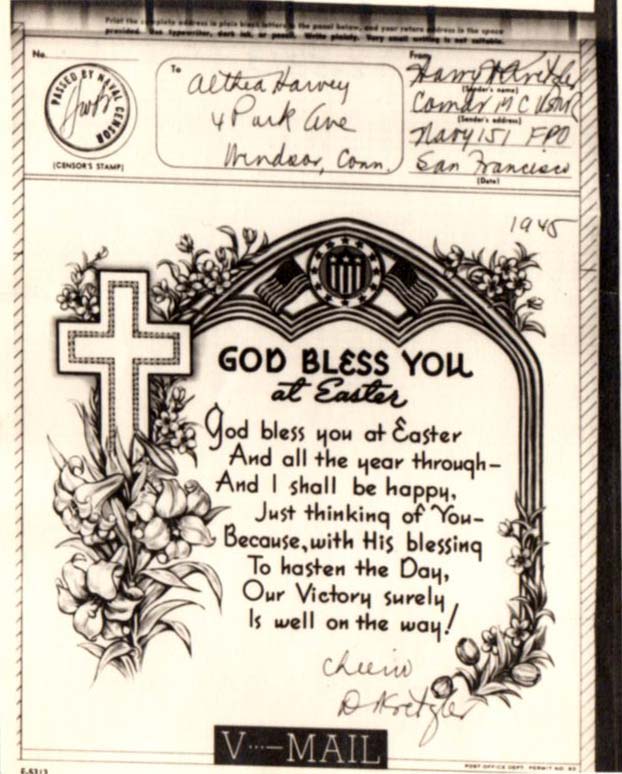 Print the complete address in plain block letters in the panel below, and your return address in the space
provided. Use typewriter, dark ink, or pencil. Write plainly. Very small writing is not suitable.
No.
PASSED BY NAVAL CENSOR
(CENSOR'S STAMP)
To
Althea Harvey
4 Park Ave
Windsor, Conn.
From
Harry H Kretzler
(Sender's name)
(Sender's address)
Navy 151 FPO
San Francisco
(Date)
1945
GOD BLESS YOU
at Easter
God bless you at Easter
And all the year through—
And I shall be happy,
Just thinking of You—
Because, with His blessing
To hasten the Day,
Our Victory surely
Is well on the way!
Cheerio
Kretzler
V···—MAIL
POST OFFICE DEPT. PERMIT NO.